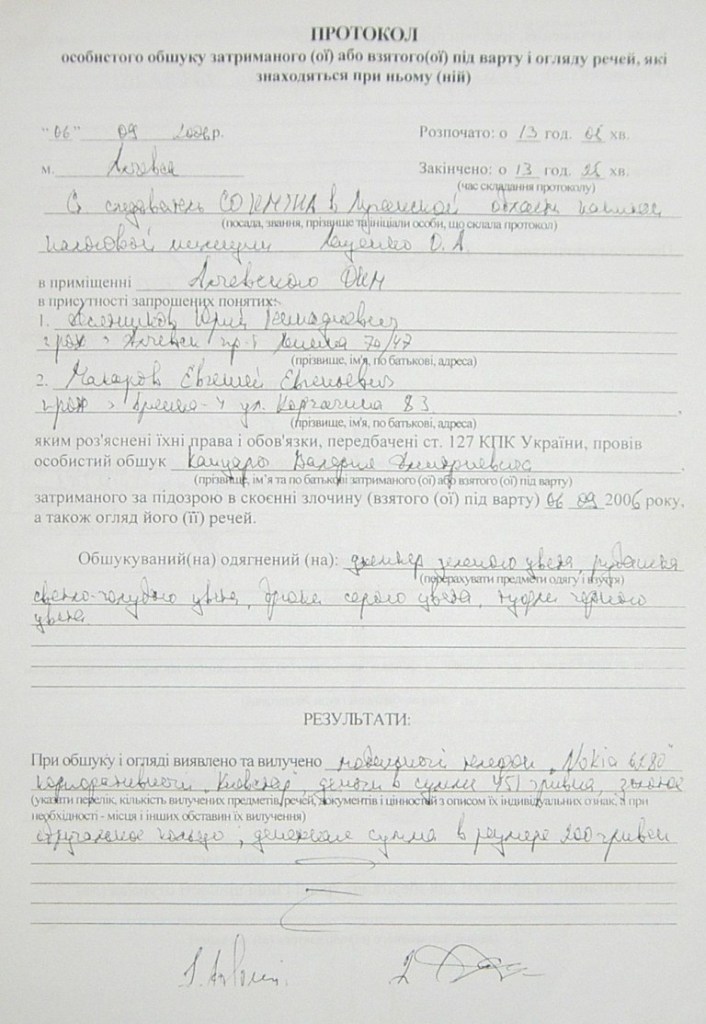 ПРОТОКОЛ
особистого обшуку затриманого (ої) або взятого(ої) під варту і огляду речей, які
знаходяться при ньому (ній)
"06" 09 2006р.
Розпочато: о 13 год. 05 хв.
м. Алчевск
Закінчено: о 13 год. 25 хв.
(час складання протоколу)
Ст. следователь СО в Луганской области капитан
(посада, звання, прізвище та ініціали особи, що склала протокол)
налоговой милиции О. А.
в приміщенні Алчевского
в присутності запрошених понятих:
1. Юрий Геннадиевич
г. Алчевск пр-т Ленина 70/47
(прізвище, ім'я, по батькові, адреса)
2. Макаров Евгений Евгеньевич
ул. 83
(прізвище, ім'я, по батькові, адреса)
яким роз'яснені їхні права і обов'язки, передбачені ст. 127 КПК України, провів
особистий обшук Валерия Дмитриевича
(прізвище, ім'я та по батькові затриманого (ої) або взятого (ої) під варту)
затриманого за підозрою в скоєнні злочину (взятого (ої) під варту) 06 09 2006 року,
а також огляд його (її) речей.
Обшукуваний(на) одягнений (на): джемпер зеленого цвета, рубашка
(перерахувати предмети одягу і взуття)
светло-голубого цвета, брюки серого цвета, туфли черного
цвета
РЕЗУЛЬТАТИ:
При обшуку і огляді виявлено та вилучено мобильный телефон „Nokia 6280"
корпоративный, деньги в сумме 451 гривна, золотое
(указати перелік, кількість вилучених предметів, речей, документів і цінностей з описом їх індивідуальних ознак, а при
необхідності - місця і інших обставин їх вилучення)
обручальное кольцо, денежная сумма в размере 200 гривен